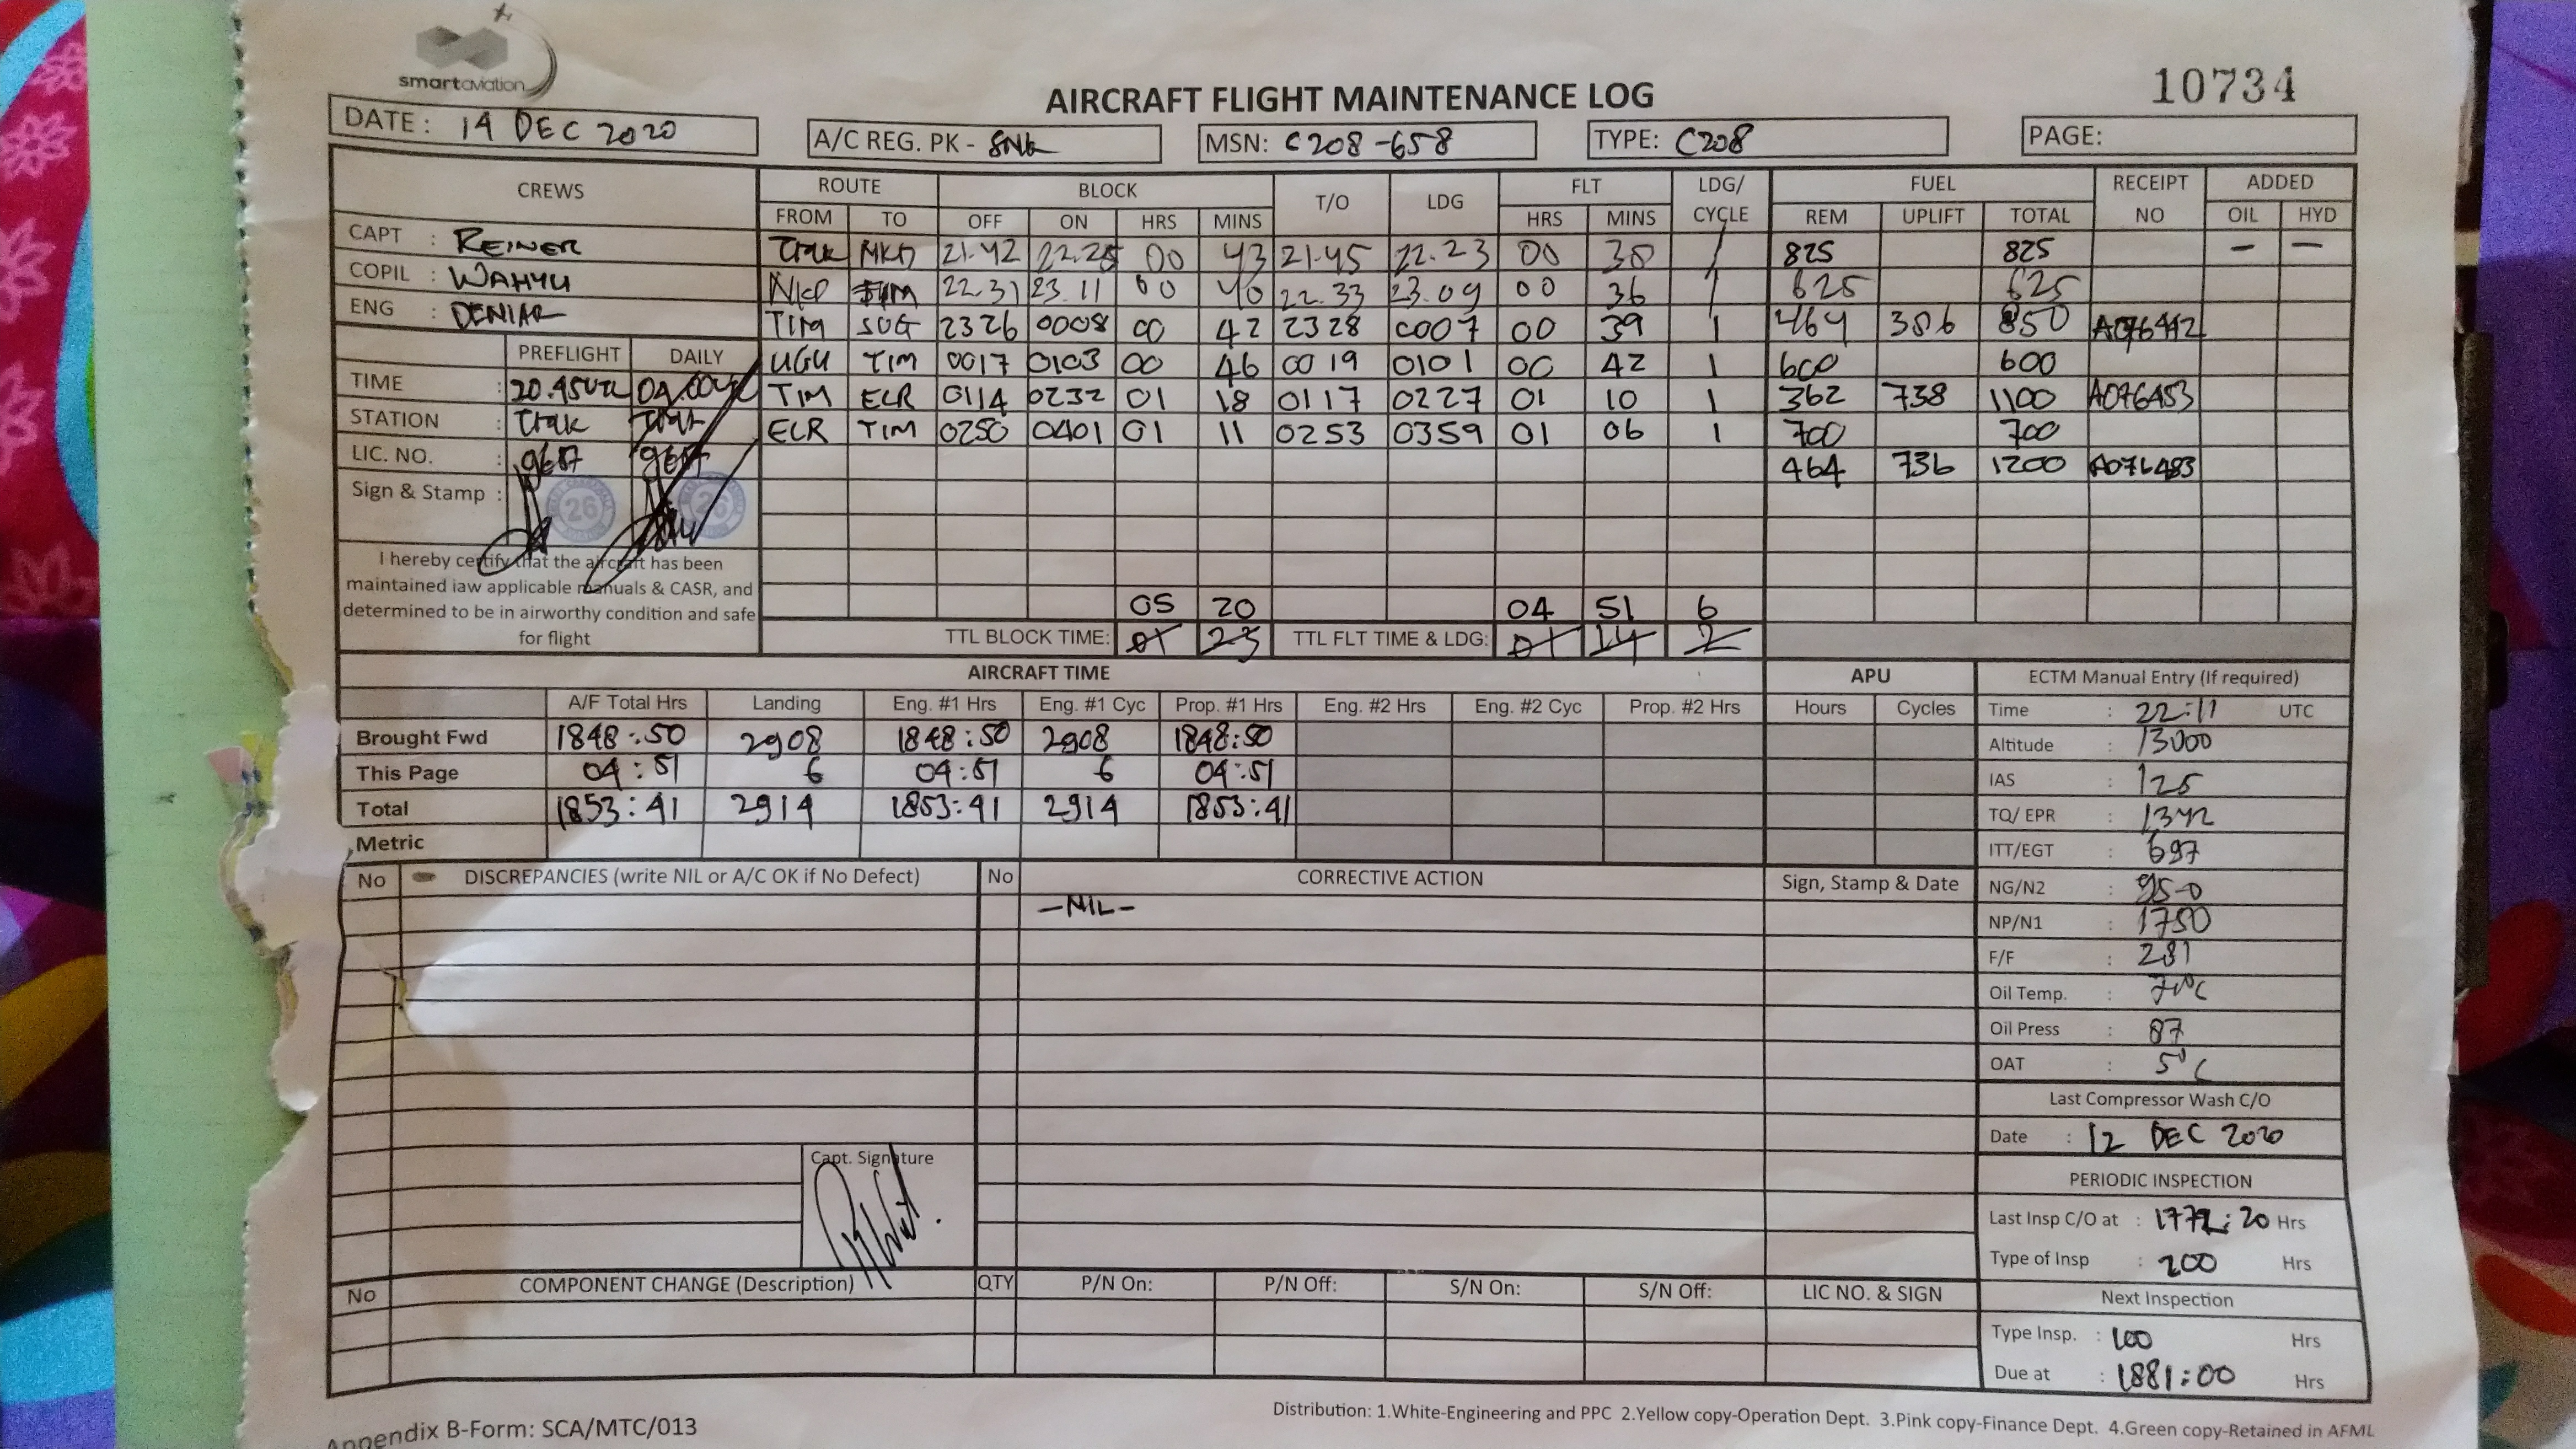 smartaviation
10734
AIRCRAFT FLIGHT MAINTENANCE LOG
DATE: 14 DEC 2020
A/C REG. PK - SNK
MSN: C208-658
TYPE: C208
PAGE:
CREWS
CAPT : REINER
COPIL : WAHYU
ENG : DENIAR
PREFLIGHT DAILY
TIME :
STATION :
LIC. NO. :
Sign & Stamp :
26 26
I hereby certify that the aircraft has been
maintained iaw applicable manuals & CASR, and
determined to be in airworthy condition and safe
for flight
ROUTE BLOCK T/O LDG FLT LDG/ CYCLE FUEL RECEIPT NO ADDED
FROM TO OFF ON HRS MINS HRS MINS REM UPLIFT TOTAL OIL HYD
21.42 00 43 21.45 22.23 00 38 1 825 825 — —
22.31 23.11 00 40 22.33 23.09 00 36 1 625 625
TIM 2326 0008 00 42 2328 0007 00 39 1 464 386 850
UGU TIM 0017 0103 00 46 0019 0101 00 42 1 600 600
TIM ELR 0114 0232 01 18 0117 0227 01 10 1 362 738 1100 A076453
ELR TIM 0250 0401 01 11 0253 0359 01 06 1 700 700
464 736 1200 A076483
05 20 04 51 6
TTL BLOCK TIME: 01 23 TTL FLT TIME & LDG: 01 14 2
AIRCRAFT TIME
A/F Total Hrs Landing Eng. #1 Hrs Eng. #1 Cyc Prop. #1 Hrs Eng. #2 Hrs Eng. #2 Cyc Prop. #2 Hrs
Brought Fwd 1848:50 2908 1848:50 2908 1848:50
This Page 04:51 6 04:51 6 04:51
Total 1853:41 2914 1853:41 2914 1853:41
Metric
APU
Hours Cycles
ECTM Manual Entry (If required)
Time : 22:11 UTC
Altitude : 13000
IAS : 125
TQ/ EPR : 1342
ITT/EGT : 697
NG/N2 : 95-0
NP/N1 : 1750
F/F : 281
Oil Temp. :
Oil Press : 87
OAT : 5°C
Last Compressor Wash C/O
Date : 12 DEC 2020
PERIODIC INSPECTION
Last Insp C/O at : Hrs
Type of Insp : 200 Hrs
Next Inspection
Type Insp. : 100 Hrs
Due at : 1881:00 Hrs
No DISCREPANCIES (write NIL or A/C OK if No Defect) No CORRECTIVE ACTION Sign, Stamp & Date
-NIL-
Capt. Signature
No COMPONENT CHANGE (Description) QTY P/N On: P/N Off: S/N On: S/N Off: LIC NO. & SIGN
Appendix B-Form: SCA/MTC/013
Distribution: 1.White-Engineering and PPC 2.Yellow copy-Operation Dept. 3.Pink copy-Finance Dept. 4.Green copy-Retained in AFML